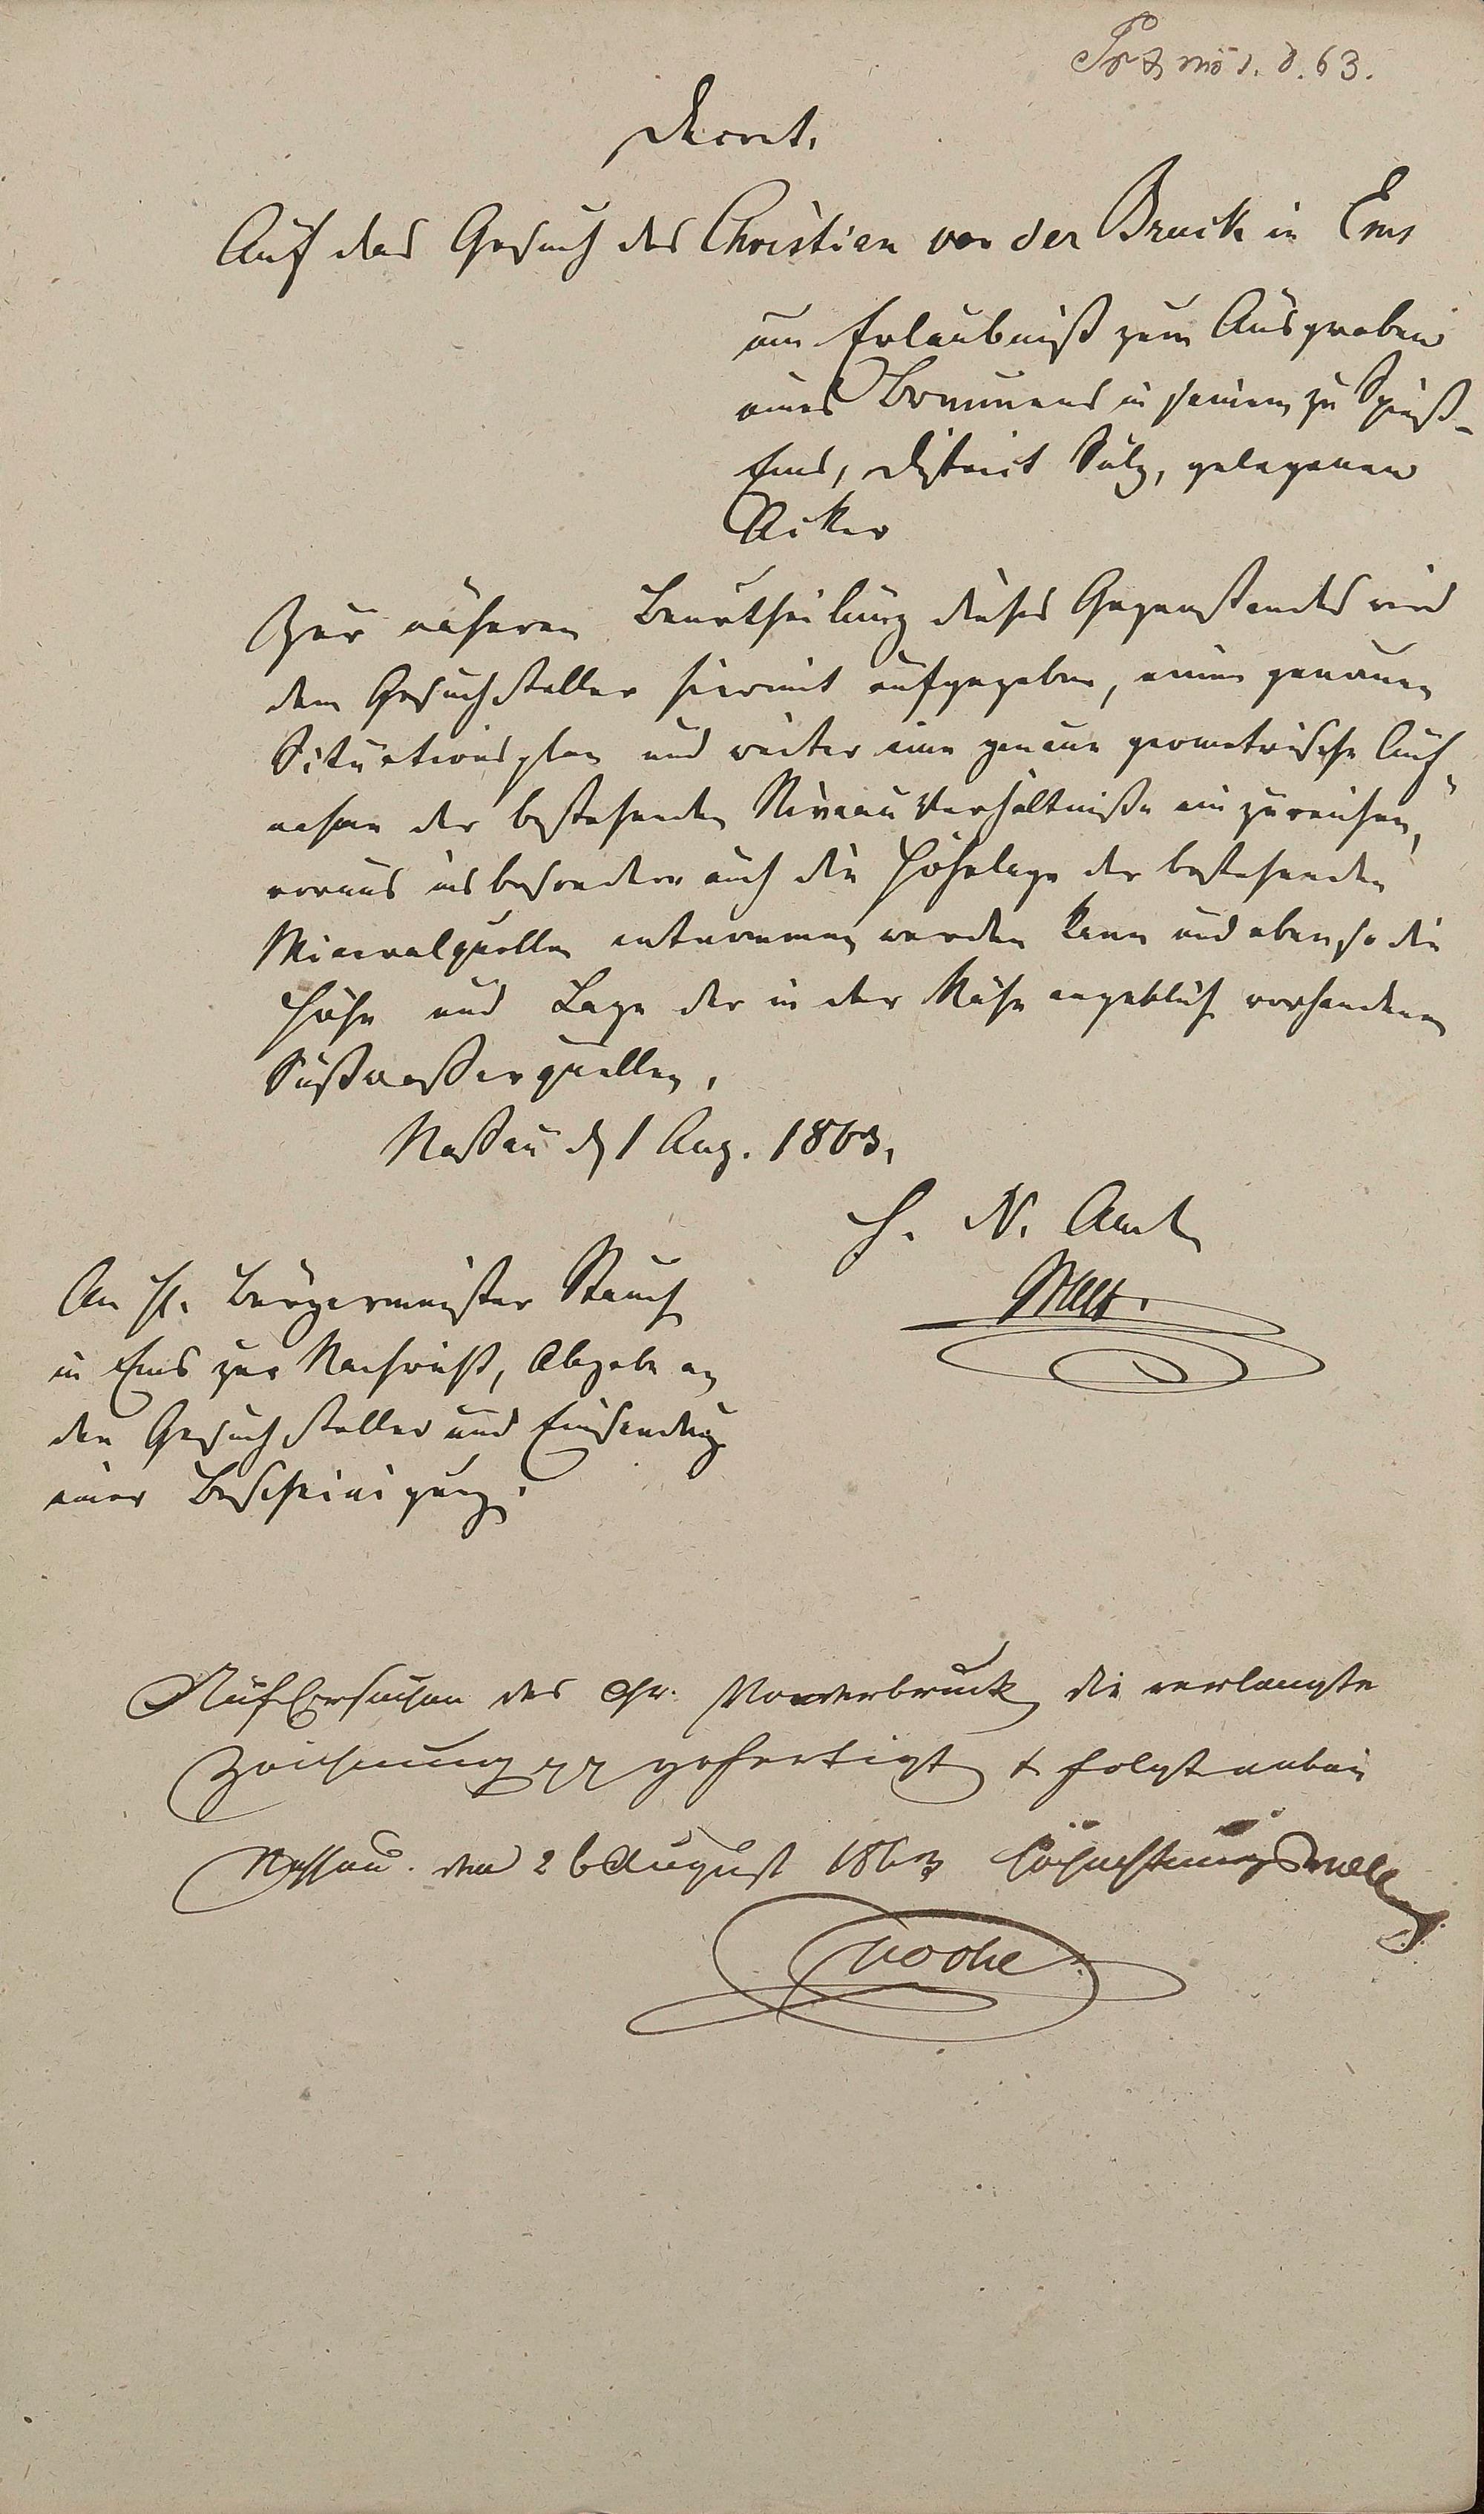 63.
Decret.
Auf das Gesuch des Christian von der Bruck in Ems
um Erlaubniß zum Ausgraben
eines Brunnens in seinem zu Spieß-
Ems, District Sülz, gelegenen
Acker
Zur näheren Beurtheilung dieses Gegenstandes wird
dem Gesuchsteller hiermit aufgegeben, einen genauen
Situationsplan und weiter eine genaue geometrische Auf-
nahme der bestehenden Niveau Verhältniße einzureichen,
woraus insbesondere auch die Höhelage der bestehenden
Mineralquellen entnommen werden kann und ebenso die
Höhe und Lage der in der Nähe angeblich vorhandenen
Süßwaßerquellen.
Naßau d 1 Aug. 1863.
H. N. Amt
An H. Bürgermeister
in Ems zur Nachricht, Abgabe an
den Gesuchsteller und Einsendung
einer Bescheinigung.
Auf Ersuchen des Chr. Vonderbruck die verlangte
Zeichnung gefertigt & folgt anbei
Nassau. den 26 August 1863